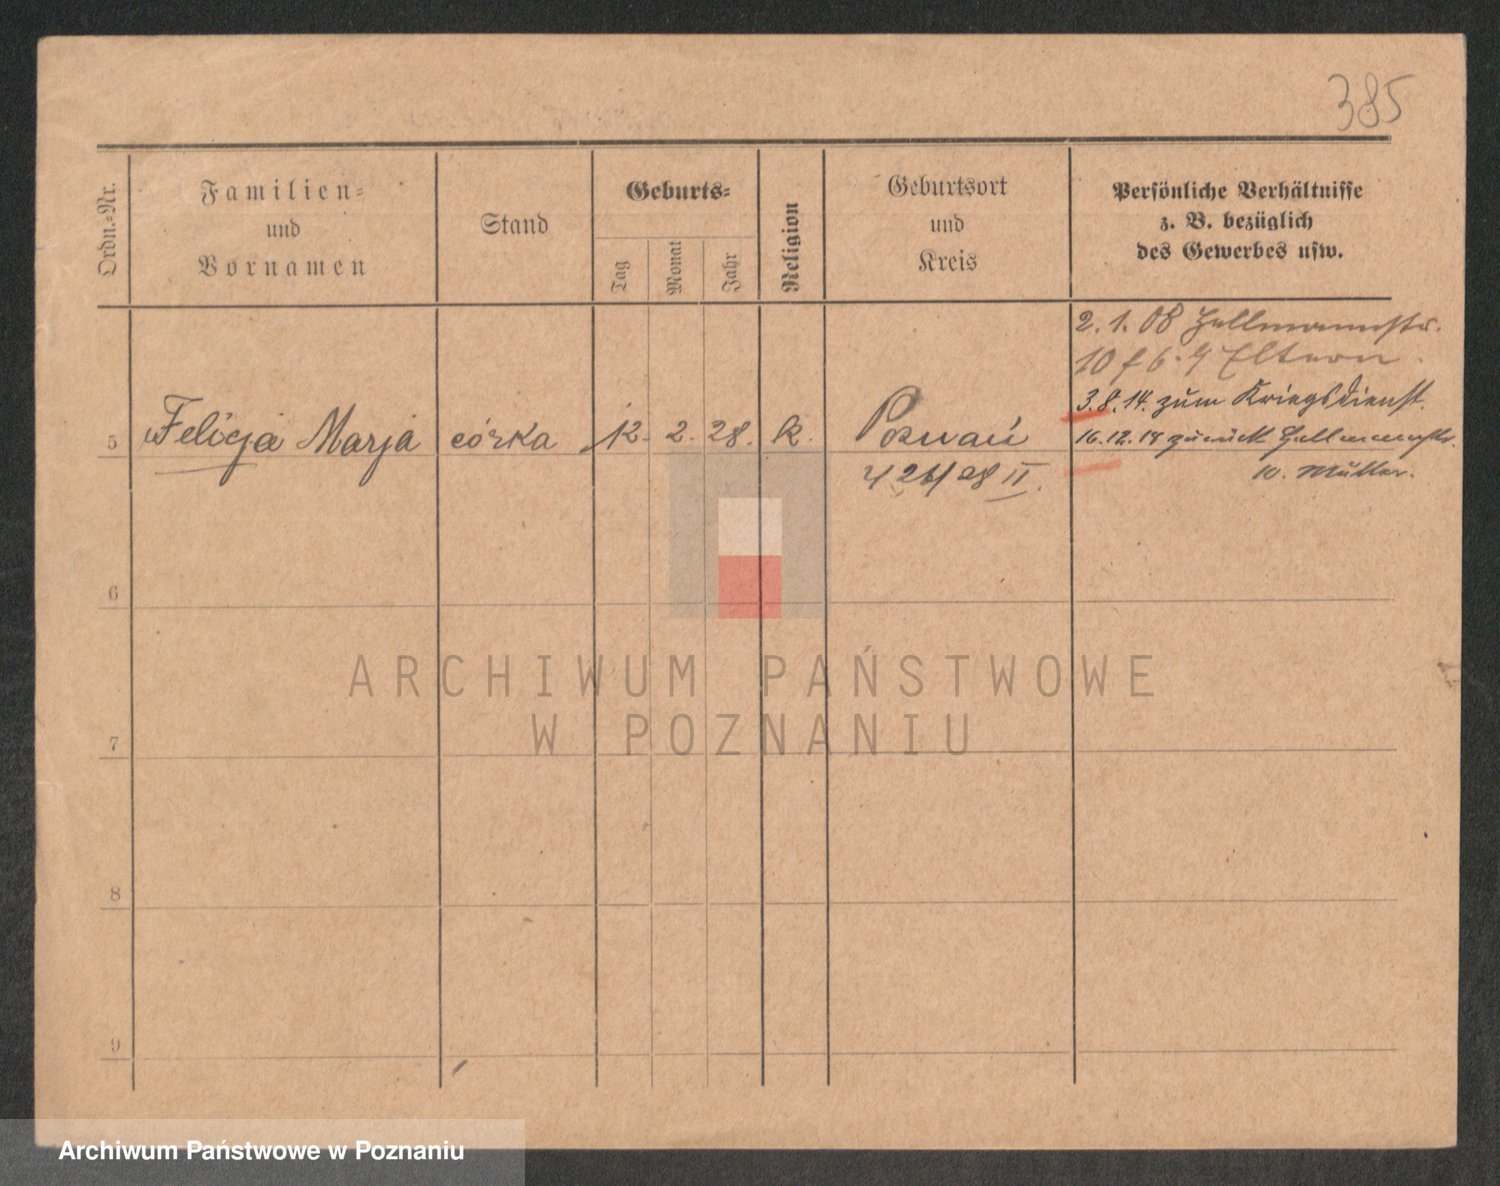 385
Ordn.=Nr.
Familien=
und
Vornamen
Stand
Geburts=
Tag
Monat
Jahr
Religion
Geburtsort
und
Kreis
Persönliche Verhältnisse
z. B. bezüglich
des Gewerbes usw.
2. 1. 08
10 Eltern
3. 8. 14. zum Kriegsdienst.
5 Felicja Marja córka 12. 2. 28. k. Poznań
16. 12. 18 zurück
10. Mutter.
26/28 II.
6
7
8
9
ARCHIWUM PAŃSTWOWE
W POZNANIU
Archiwum Państwowe w Poznaniu